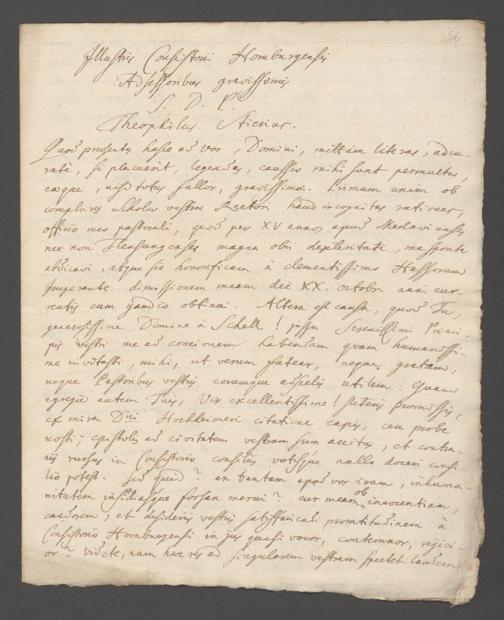 56
Illustris Consistorii Homburgensis
Adsessoribus gravissimis
S. D. P.
Theophilus
Quod praesentes hasce ad vos, Domini, mittam literas, adcu-
rate, si placuerit, legendas, caussae mihi sunt permultae,
eaeque, nisi totus fallor, gravissimae. Primum enim ob
complures Scholae vestrae Rectori haud incognitas rationes,
officio meo pastorali, quod per XV annos apud
nec non magna obii dexteritate, mea sponte
abdicavi, atque sic honorificam a clementissimo Hassorum
Imperante dimissionem meam die XX. octobr. anni cur-
rentis cum gaudio obtinui. Altera est causa, quod Tu,
generosissime Domine a Schell! jussu Serenissimi Princi-
pis vestri me ad concionem habendam quam humanissi-
me invitasti, mihi, ut verum fatear, neque gratam,
neque Pastoribus vestris eorumque utilem. Quam
egregie autem Tuis, Vir excellentissime! steteris promissis,
ex mira Dni citatione capis, ceu probe
nosti; epistolis ad civitatem vestram sum accitus, et contra-
riis rursus in Consistorio consiliis votisque nullo doceri consi-
lio potest. Sed quid? an tantam apud vos iram, inhuma-
nitatem insidiasque forsan merui? cur ob meam innocentiam,
candorem, et desiderii vestri satisfaciendi promtitudinem a
Consistorio Homburgensi in jus quasi vocor, contemnor, rejici-
or? videte, num haec res ad singularem vestram spectet laudem